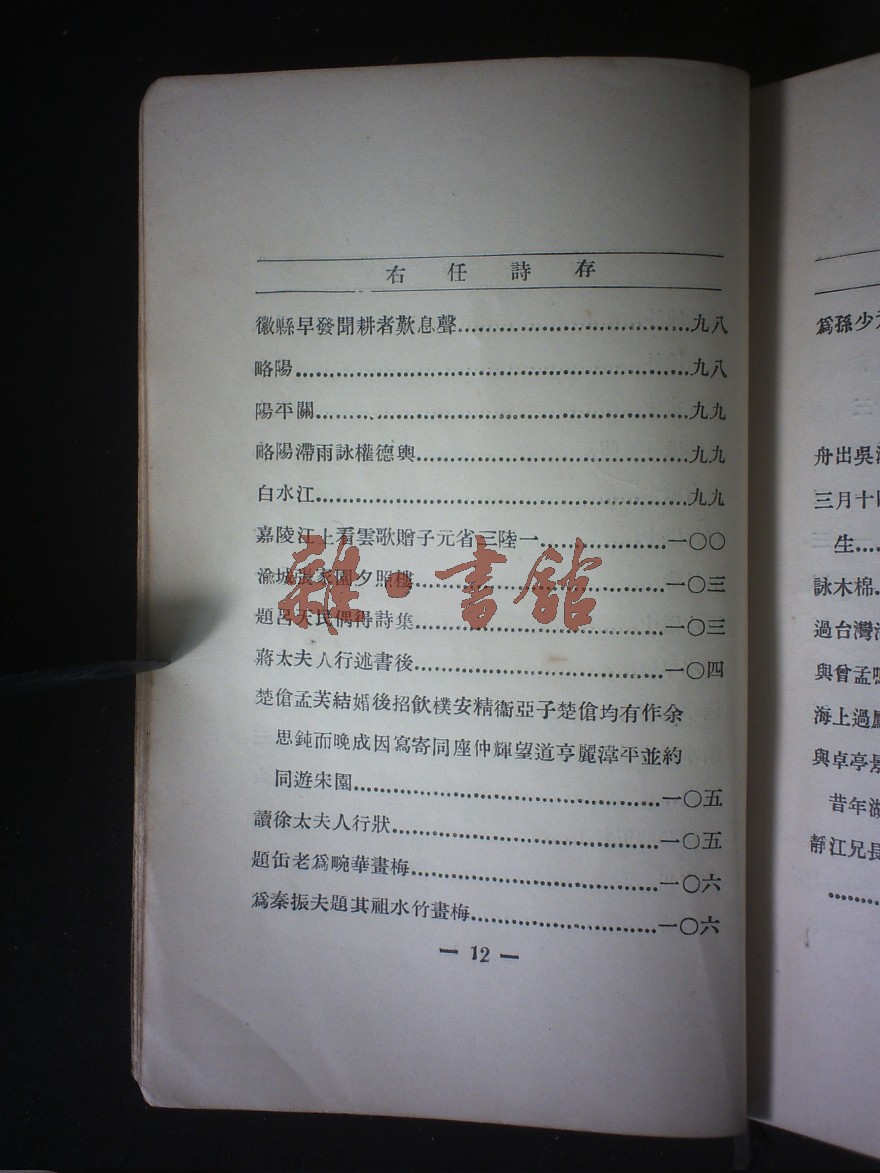 右任詩存
徽縣早發聞耕者歎息聲……九八
略陽……九八
陽平關……九九
略陽滯雨詠權德輿……九九
白水江……九九
嘉陵江上看雲歌贈子元省三陸一……一〇〇
渝城張家園夕照樓……一〇三
題呂天民偶得詩集……一〇三
蔣太夫人行述書後……一〇四
楚傖孟芙結婚後招飲樸安精衞亞子楚傖均有作余
思鈍而晚成因寫寄同座仲輝望道亨麗漳平並約
同遊宋園……一〇五
讀徐太夫人行狀……一〇五
題缶老爲畹華畫梅……一〇六
爲秦振夫題其祖水竹畫梅……一〇六
— 12 —
雜·書館
爲孫少
舟出吳
三月十
生……
詠木棉
過台灣
與曾孟
海上過
與卓亭景
昔年湖
靜江兄長